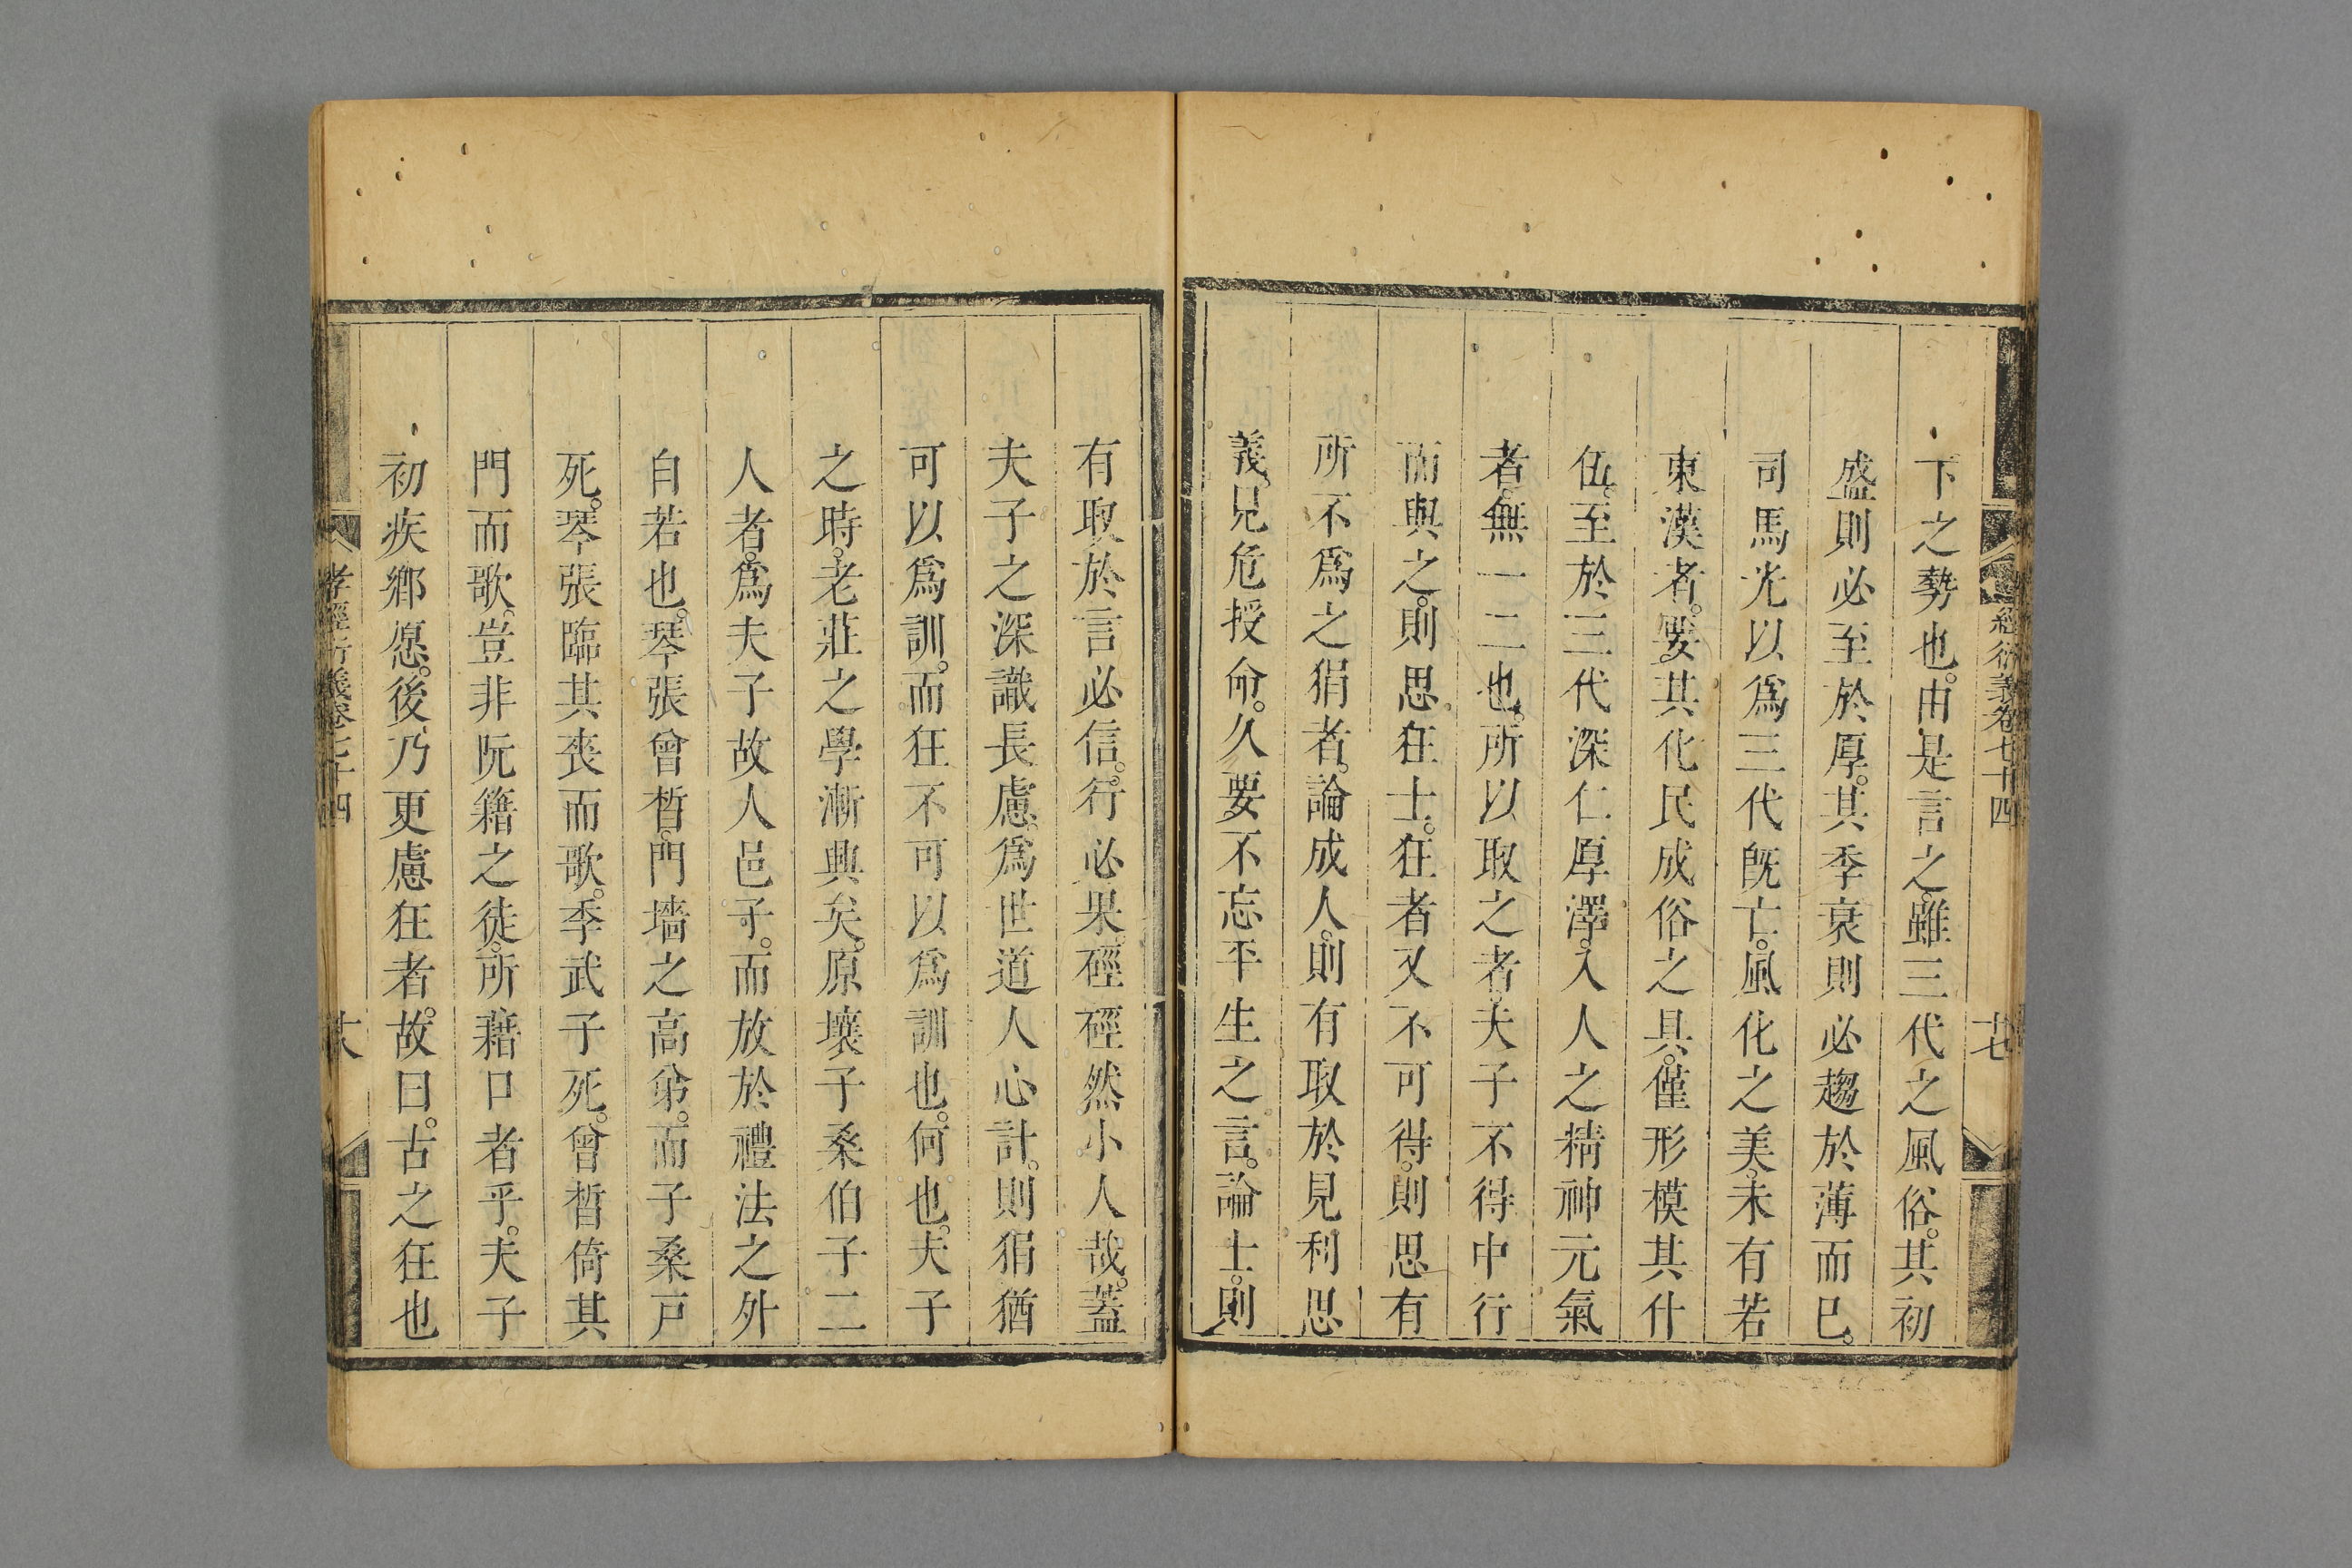 經衍義卷七十四
十七
下之勢也。由是言之。雖三代之風俗。其初
盛則必至於厚。其季衰則必趨於薄而已。
司馬光以爲三代旣亡。風化之美。未有若
東漢者。要其化民成俗之具。僅形模其什
伍。至於三代深仁厚澤。入人之精神元氣
者。無一二也。所以取之者。夫子不得中行
而與之。則思狂士。狂者又不可得。則思有
所不爲之狷者。論成人。則有取於見利思
義。見危授命。久要不忘平生之言。論士。則
有取於言必信。行必果。硜硜然小人哉。蓋
夫子之深識長慮。爲世道人心計。則狷猶
可以爲訓。而狂不可以爲訓也。何也。夫子
之時。老莊之學漸興矣。原壤子桑伯子二
人者。爲夫子故人邑子。而放於禮法之外
自若也。琴張曾晳。門墻之高第。而子桑戸
死。琴張臨其喪而歌。季武子死。曾晳倚其
門而歌。豈非阮籍之徒。所藉口者乎。夫子
初疾鄕愿。後乃更慮狂者。故曰。古之狂也
孝經衍義卷七十四
十八